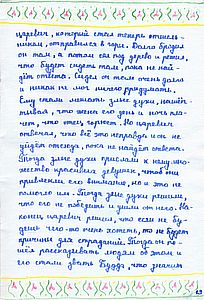 царевич, который стал теперь отшель-
ником, отправился в горы. Долго бродил
он там, а потом сел под дерево и решил,
что будет сидеть там, пока не най-
дёт ответа. Сидел он там очень долго
и никак не мог ничего придумать.
Ему стали мешать злые духи, нашёп-
тывая, что жена его день и ночь пла-
чет, что отец горюет. Но царевич
отвечал, что всё это неправда и он не
уйдёт отсюда, пока не найдёт ответа.
Тогда злые духи прислали к нему мно-
жество красивых девушек, чтоб они
привлекли его внимание, но и это не
помогло им. Тогда злые духи решили,
что его не победить и ушли от него. На-
конец царевич решил, что если не бу-
дешь чего-то очень хотеть, то не будет
причины для страданий. Тогда он по-
шёл рассказывать людям об этом и
его стали звать Будда, что значит